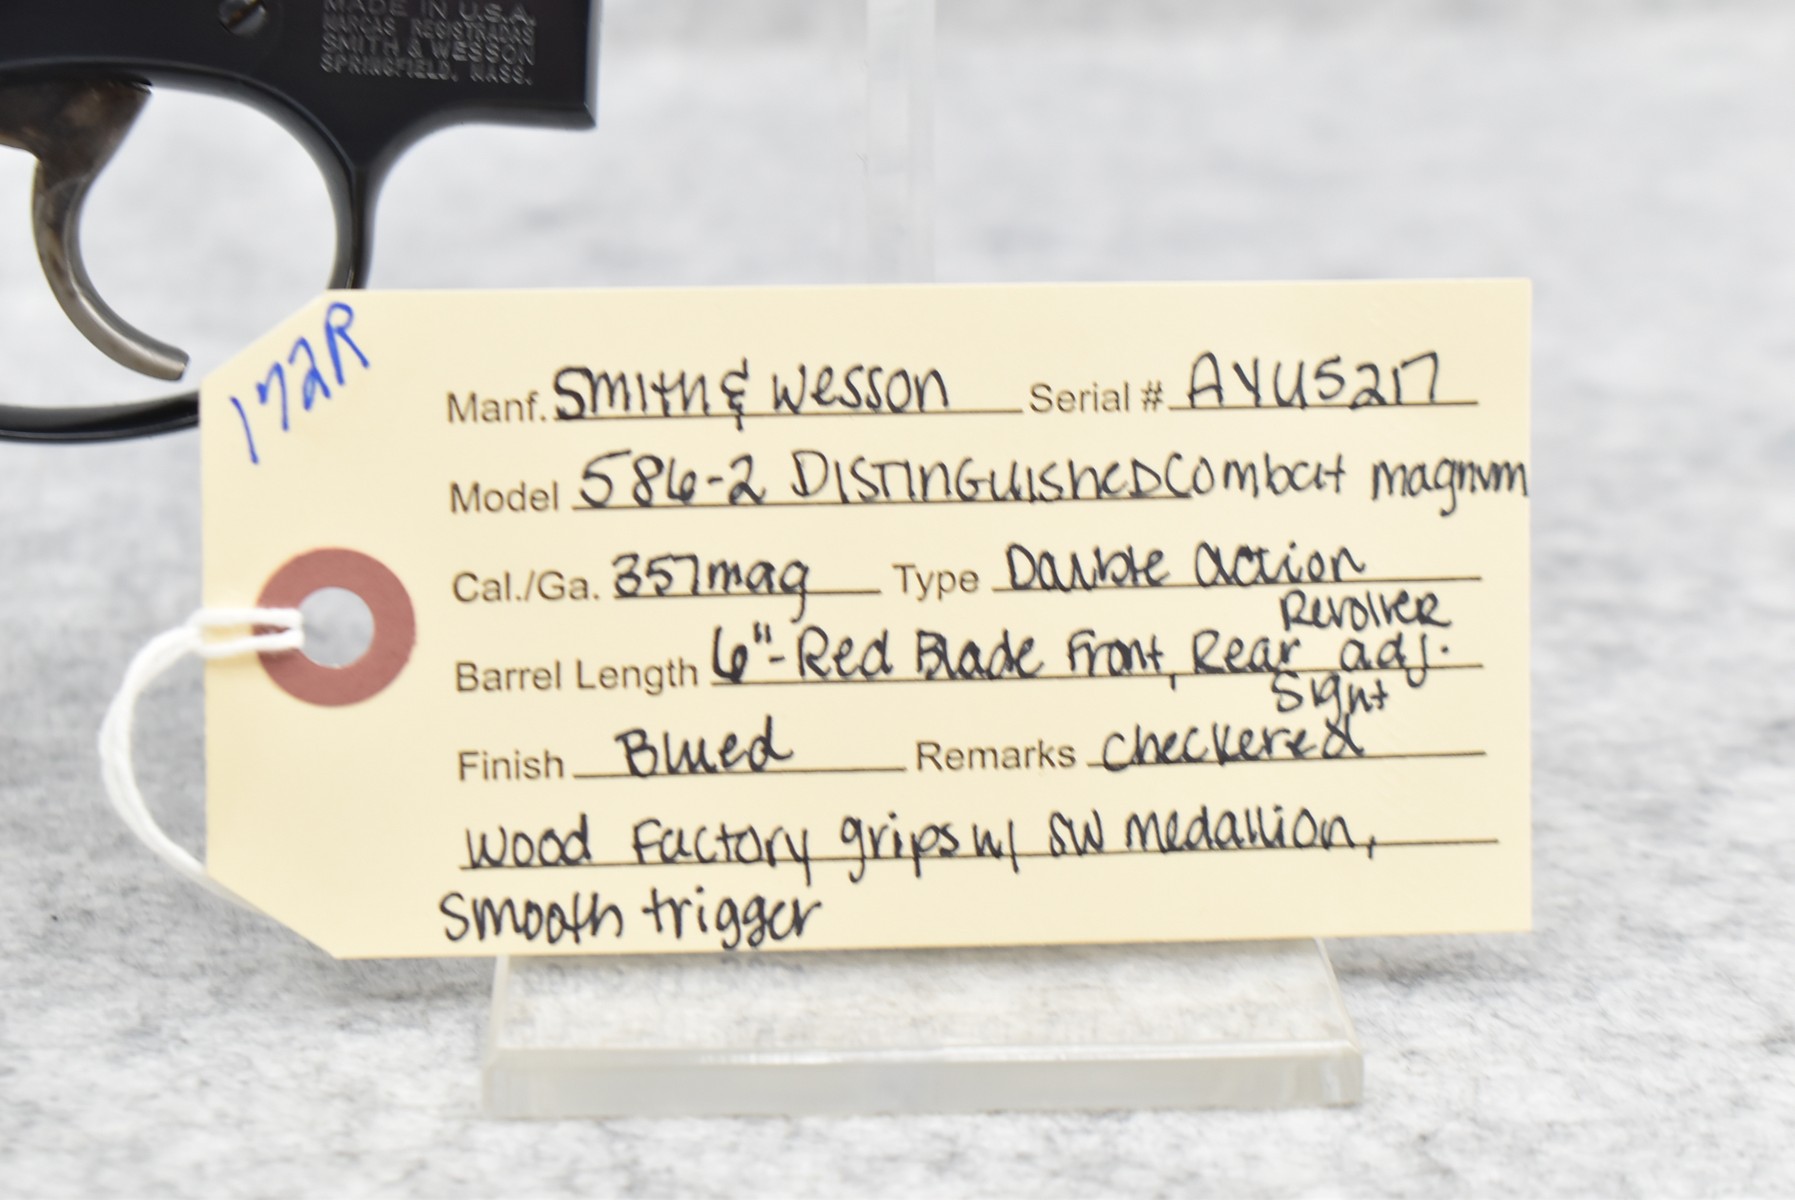 MADE IN U.S.A.
MARCAS REGISTRADAS
SMITH & WESSON
SPRINGFIELD, MASS.
172R
Manf. Smith & Wesson Serial # AYU5217
Model 586-2 Distinguished Combat magnum
Cal./Ga. 357mag Type Double action
Revolver
Barrel Length 6"- Red Blade Front, Rear adj.
Sight
Finish Blued Remarks checkered
wood Factory grips w/ SW medallion,
Smooth trigger